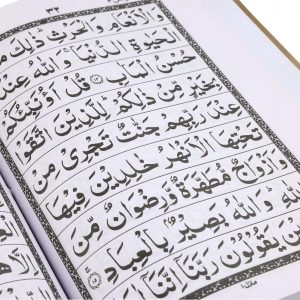 وَالْاَنْعَامِ وَالْحَرْثِ ؕ ذٰلِكَ
الْحَيٰوةِ الدُّنْيَا ۚ وَاللّٰهُ عِنْدَ
حُسْنُ الْمَاٰبِ ﴿۱۴﴾ قُلْ اَؤُنَبِّئُكُمْ
بِخَيْرٍ مِّنْ ذٰلِكُمْ ؕ لِلَّذِيْنَ اتَّقَوْا
عِنْدَ رَبِّهِمْ جَنّٰتٌ تَجْرِيْ مِنْ
تَحْتِهَا الْاَنْهٰرُ خٰلِدِيْنَ فِيْهَا
وَاَزْوَاجٌ مُّطَهَّرَةٌ وَّرِضْوَانٌ مِّنَ
وَاللّٰهُ بَصِيْرٌۢ بِالْعِبَادِ ﴿۱۵﴾
يَقُوْلُوْنَ رَبَّنَاۤ اِنَّنَاۤ
منزل ۱